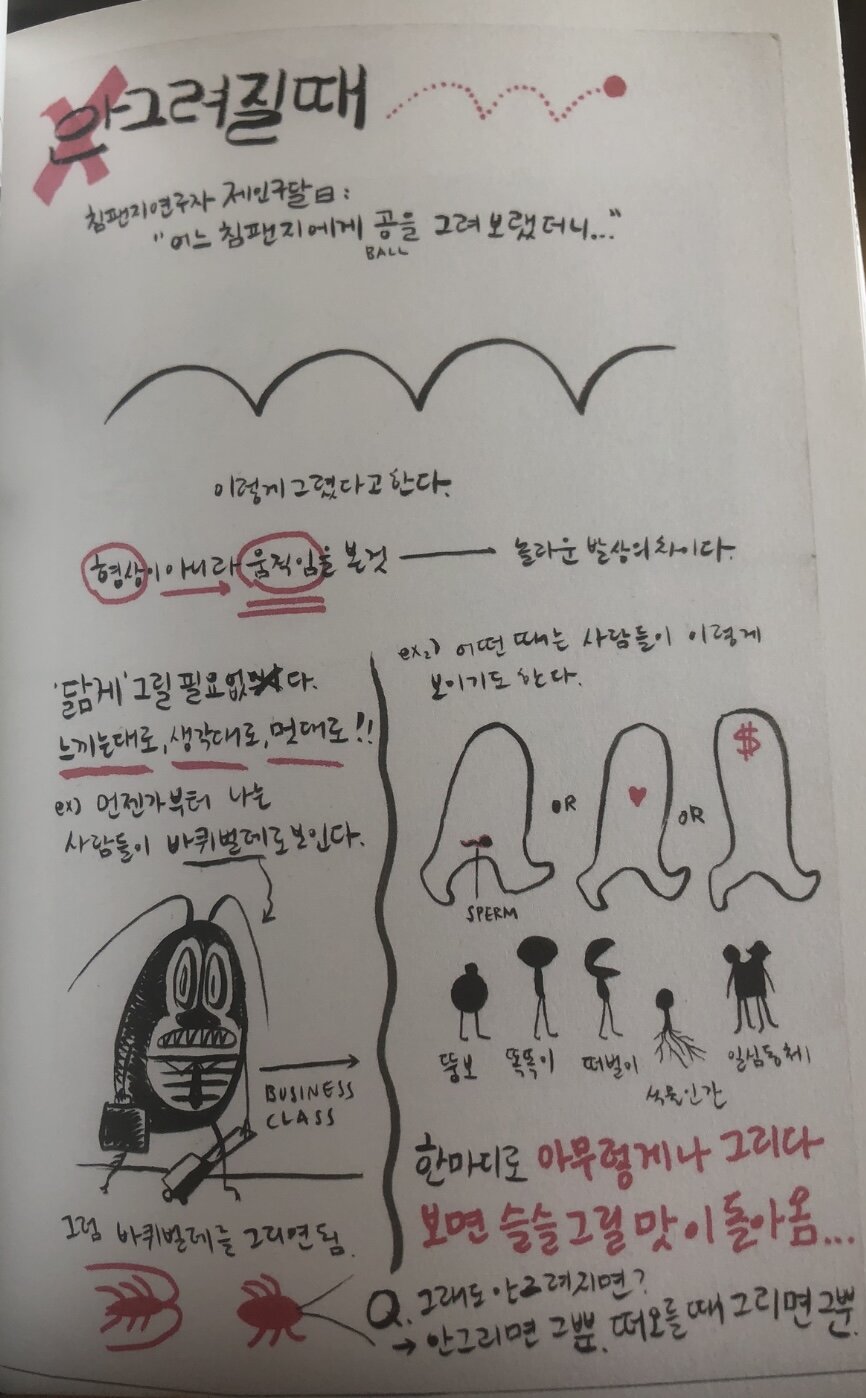 안그려질때
침팬지연구자 제인구달曰:
"어느 침팬지에게 공을 그려보랬더니..."
BALL
이렇게그렸다고한다.
형상이 아니라 움직임을 본것 — 놀라운 발상의차이다.
'닮게' 그릴 필요없다.
느끼는대로, 생각대로, 멋대로!!
ex) 언젠가부터 나는
사람들이 바퀴벌레로보인다.
BUSINESS
CLASS
그럼 바퀴벌레를 그리면됨.
ex2) 어떤 때는 사람들이 이렇게
보이기도 한다.
$
OR
OR
SPERM
뚱보 똑똑이 떠벌이 식물인간 일심동체
한마디로 아무렇게나 그리다
보면 슬슬그릴 맛이 돌아옴...
Q. 그래도 안그려지면?
→ 안그리면 그뿐. 떠오를때 그리면 그뿐.